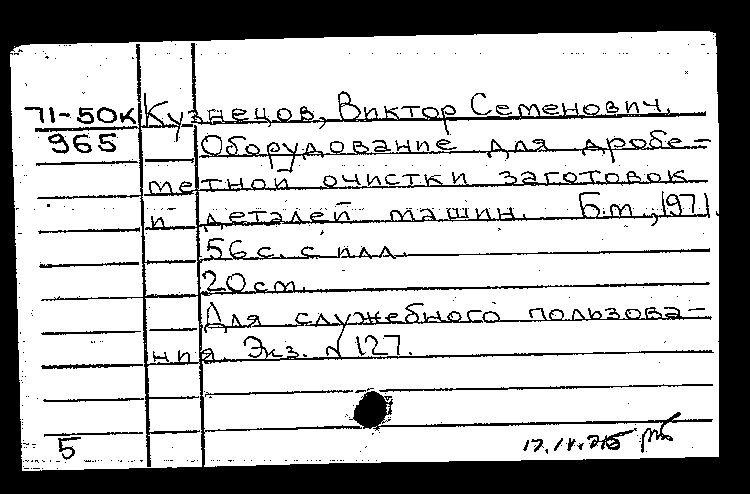 71-50к Кузнецов, Виктор Семенович.
965 Оборудование для дробе-
метной очистки заготовок
и деталей машин. Б.м., 1971.
56 с. с илл.
20 см.
Для служебного пользова-
ния. Экз. N 127.
5